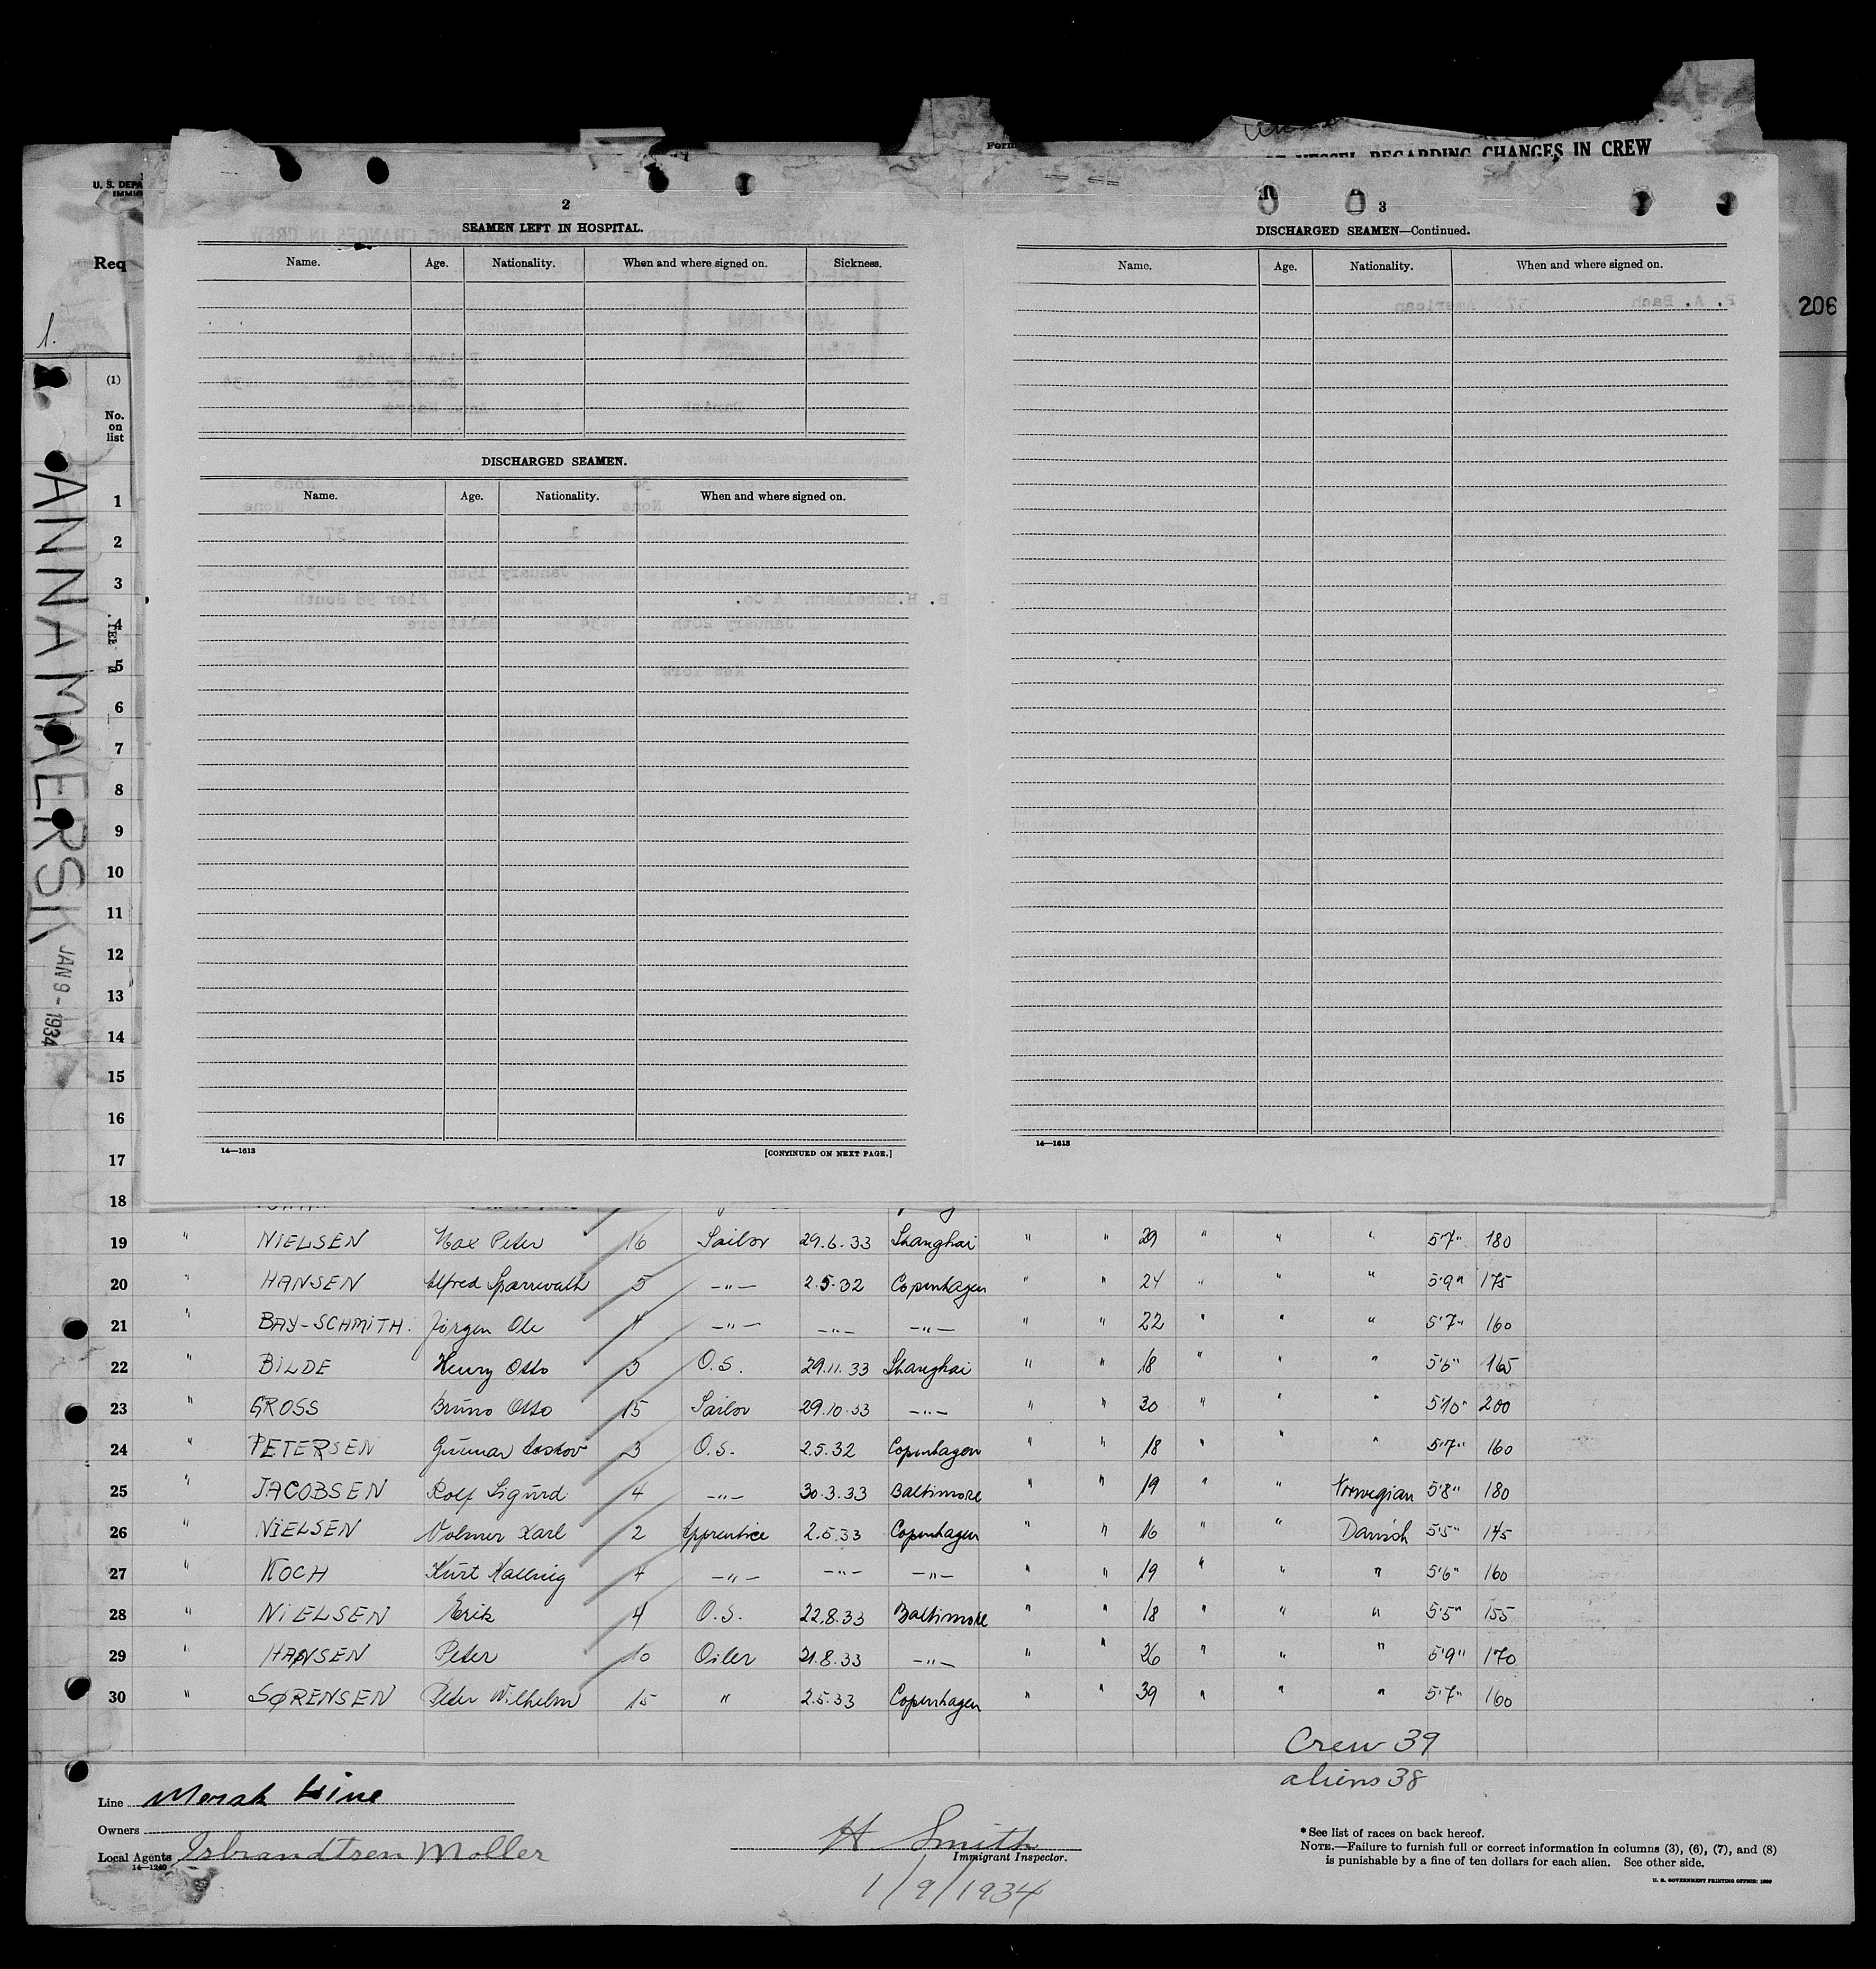 VESSEL REGARDING CHANGES IN CREW
U. S. DEPA
IMMIG
Req
1.
206
2
SEAMEN LEFT IN HOSPITAL.
Name. Age. Nationality. When and where signed on. Sickness.
DISCHARGED SEAMEN.
Name. Age. Nationality. When and where signed on.
14—1613 [CONTINUED ON NEXT PAGE.]
3
DISCHARGED SEAMEN—Continued.
Name. Age. Nationality. When and where signed on.
14—1613
ANNA MAERSK JAN 9 - 1934
(1)
No.
on
list
1
2
3
4
5
6
7
8
9
10
11
12
13
14
15
16
17
18
19 " NIELSEN Max Peter 16 Sailor 29.6.33 Shanghai " " 29 " " " 5'7" 180
20 " HANSEN Alfred 5 —"— 2.5.32 Copenhagen " " 24 " " " 5'9" 175
21 " BAY-SCHMITH. Jörgen Ole 4 —"— —"— —"— " " 22 " " " 5'7" 160
22 " BILDE Henry Otto 3 O.S. 29.11.33 Shanghai " " 18 " " " 5'6" 165
23 " GROSS Bruno Otto 15 Sailor 29.10.33 —"— " " 30 " " " 5'10" 200
24 " PETERSEN Gunnar 3 O.S. 2.5.32 Copenhagen " " 18 " " " 5'7" 160
25 " JACOBSEN Rolf Sigurd 4 —"— 30.3.33 Baltimore " " 19 " " Norwegian 5'8" 180
26 " NIELSEN Volmer Karl 2 Apprentice 2.5.33 Copenhagen " " 16 " " Danish 5'5" 145
27 " KOCH Kurt 4 —"— —"— —"— " " 19 " " " 5'6" 160
28 " NIELSEN Erik 4 O.S. 22.8.33 Baltimore " " 18 " " " 5'5" 155
29 " HANSEN Peter 10 Oiler 21.8.33 —"— " " 26 " " " 5'9" 170
30 " SØRENSEN Peter Wilhelm 15 " 2.5.33 Copenhagen " " 39 " " " 5'7" 160
Crew 39
aliens 38
Line Mersk Line
Owners
Local Agents Isbrandtsen Moller
14—1240
H Smith
Immigrant Inspector.
1/9/1934
* See list of races on back hereof.
NOTE.—Failure to furnish full or correct information in columns (3), (6), (7), and (8)
is punishable by a fine of ten dollars for each alien. See other side.
U. S. GOVERNMENT PRINTING OFFICE: 1930